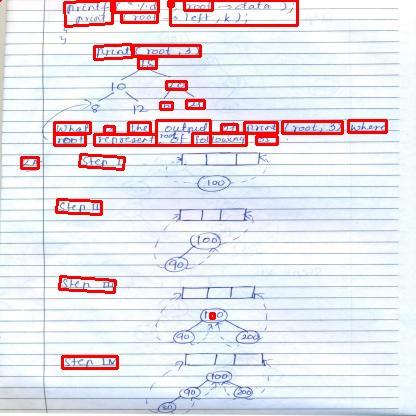 printf ( " %d root → data );
print ( root → left , k );
}
}
print ( root, 3 )
15
10
8 12
What the output of print ( root, 3 ) where
root represent root of following
Step I
100
Step II
100
90
Step III
100
90 200
Step IV
100
90 200